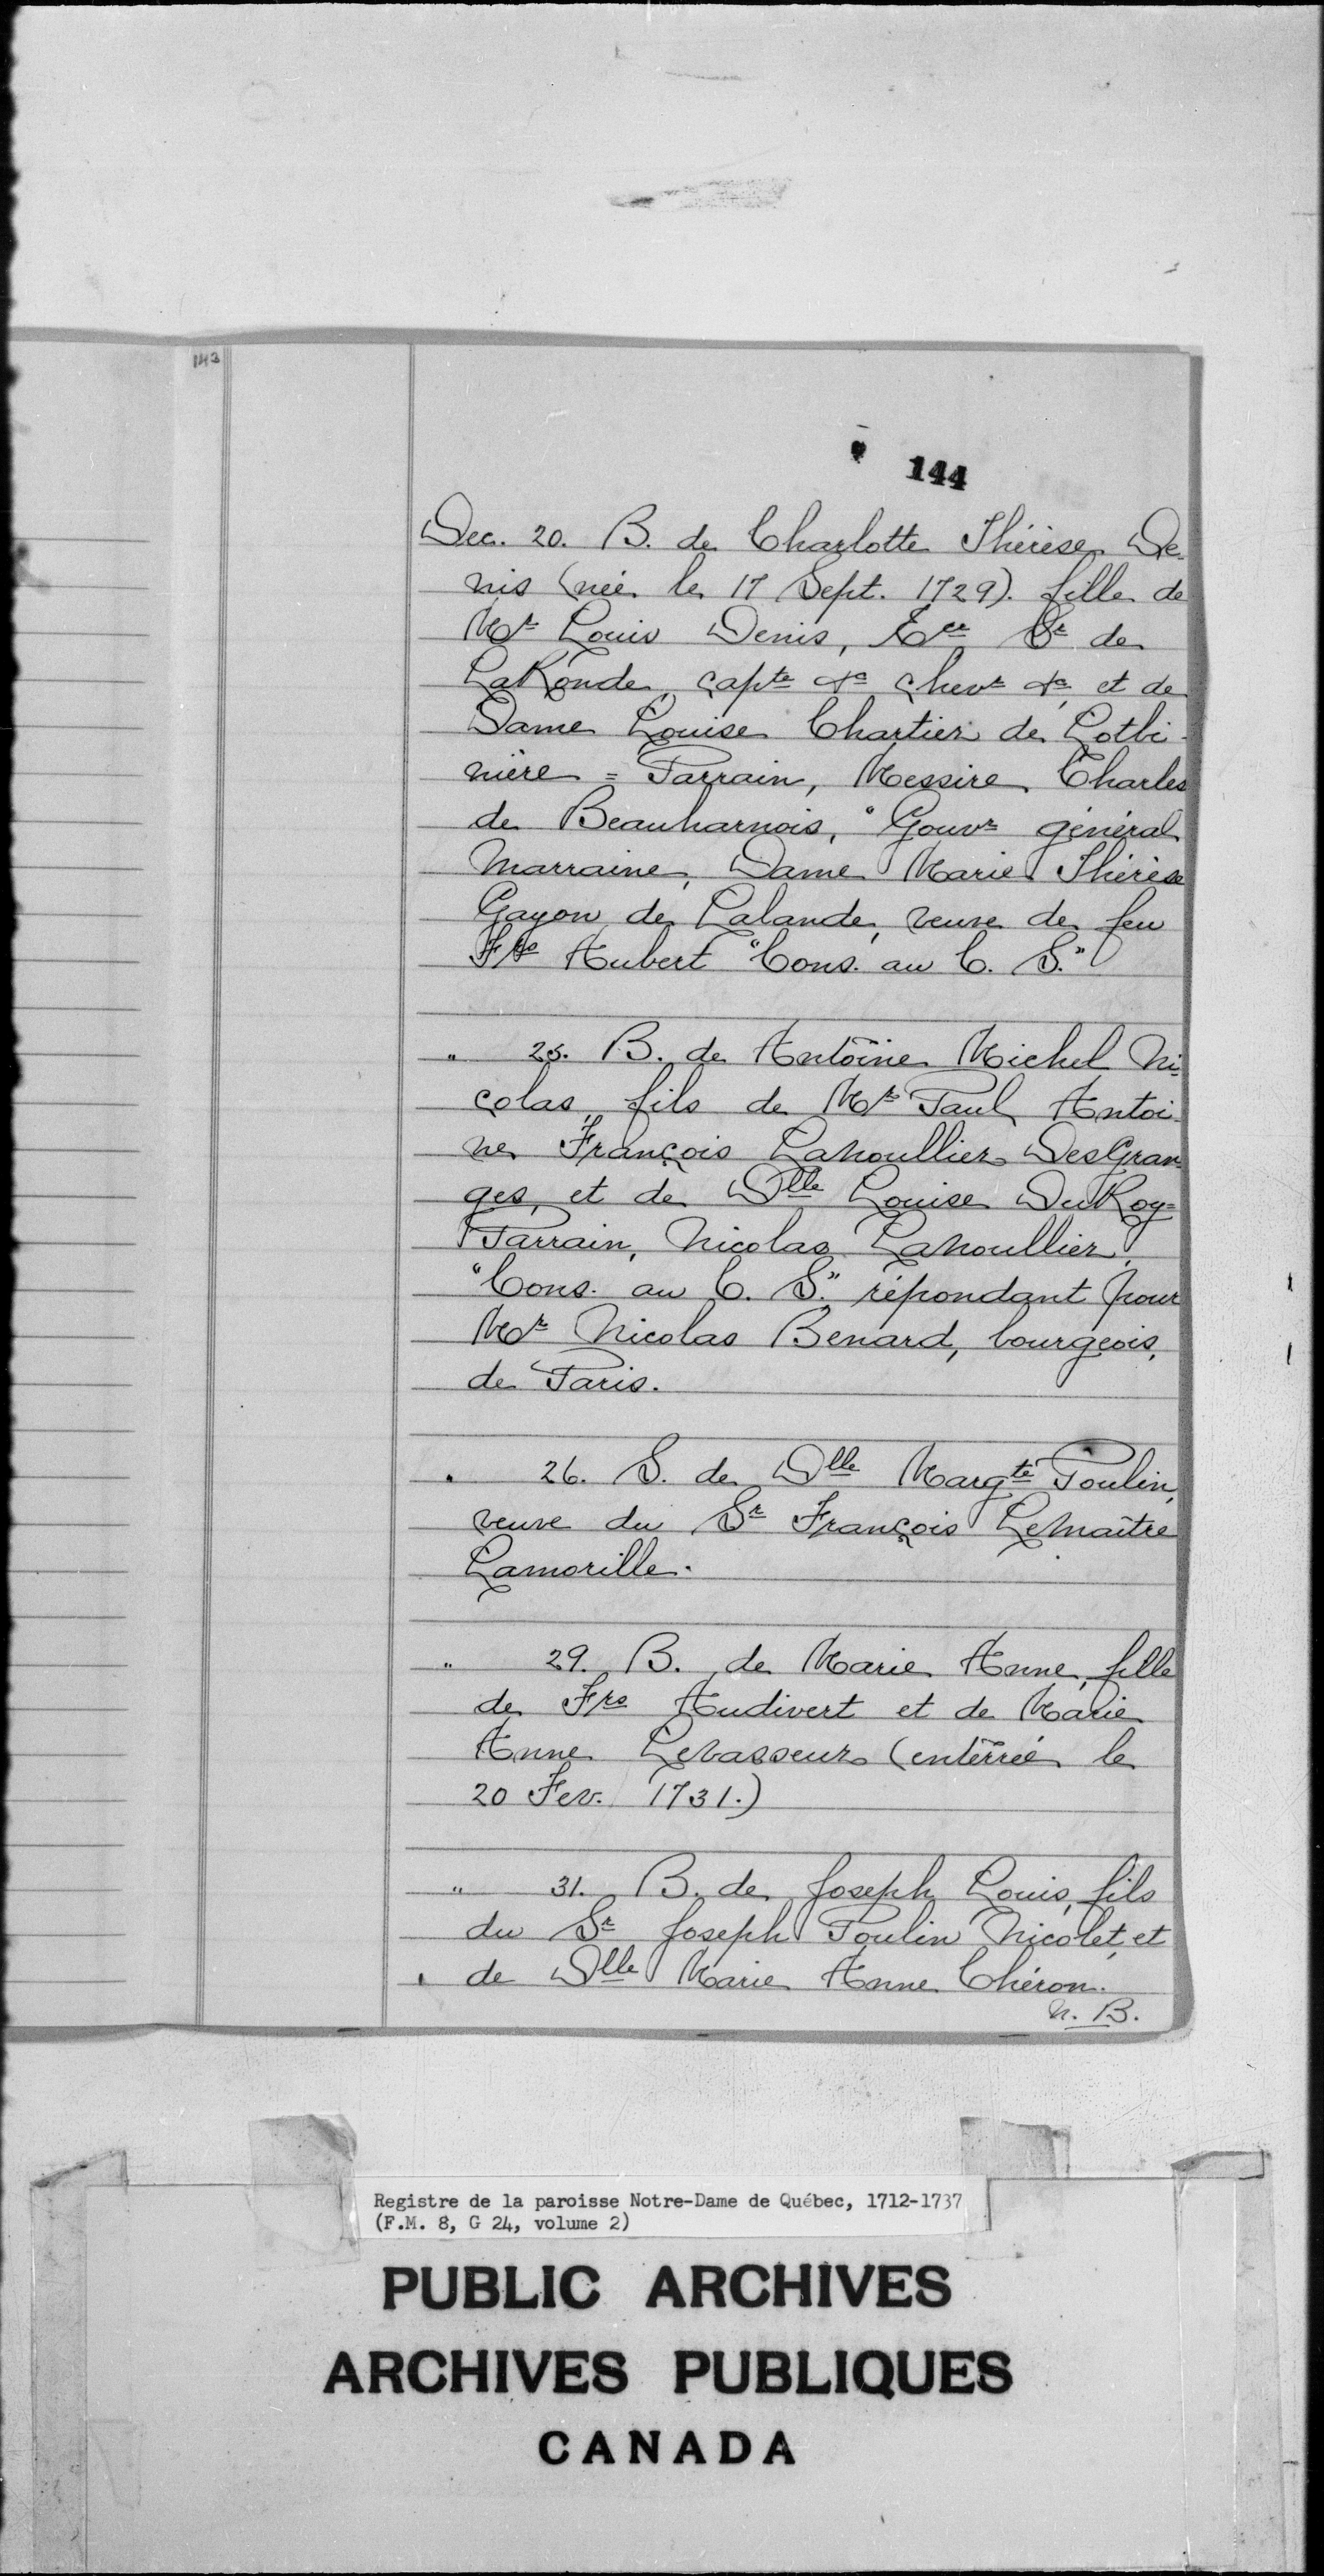 143
144
Dec. 20. B. de Charlotte Thérèse De-
nis (née le 17 Sept. 1729). fille de
Mr Louis Denis, Ecr Sr de
LaRonde, capte &c chevr &c, et de
Dame Louise Chartier de Lotbi-
nière = Parrain, Messire Charles
de Beauharnois, "Gouvr général
Marraine, Dame Marie Thérèse
Gayon de Lalande, veuve de feu
Frs Aubert "Cons. au C. S."
" 25. B. de Antoine Michel Ni-
colas, fils de Mr Paul Antoi-
ne François Lanoullier DesGran
ges, et de Dlle Louise DuRoy=
Parrain, Nicolas Lanoullier,
"Cons. au C. S." répondant pour
Mr Nicolas Benard, bourgeois,
de Paris.
" 26. S. de Dlle Margte Poulin,
veuve du Sr François LeMaître
Lamorille.
" 29. B. de Marie Anne, fille
de Frs Audivert et de Marie
Anne Levasseur (enterrée le
20 Fev. 1731.)
" 31. B. de Joseph Louis, fils
du Sr Joseph Poulin Nicolet, et
de Dlle Marie Anne Chéron.
N. B.
Registre de la paroisse Notre-Dame de Québec, 1712-1737
(F.M. 8, G 24, volume 2)
PUBLIC ARCHIVES
ARCHIVES PUBLIQUES
CANADA